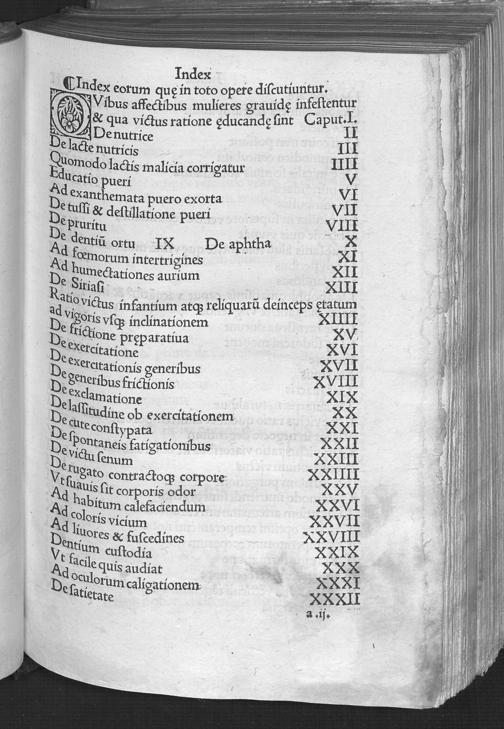 Index
¶Index eorum quę in toto opere discutiuntur.
QVibus affectibus mulieres grauidę infestentur
& qua victus ratione ęducandę sint Caput.I.
De nutrice II
De lacte nutricis III
Quomodo lactis malicia corrigatur IIII
Educatio pueri V
Ad exanthemata puero exorta VI
De tussi & destillatione pueri VII
De pruritu VIII
De dentiū ortu IX De aphtha X
Ad fœmorum intertrigines XI
Ad humectationes aurium XII
De Siriasi XIII
Ratio victus infantium atqꝫ reliquarū deinceps ętatum
ad vigoris vsqꝫ inclinationem XIIII
De frictione pręparatiua XV
De exercitatione XVI
De exercitationis generibus XVII
De generibus frictionis XVIII
De exclamatione XIX
De lassitudine ob exercitationem XX
De cute constypata XXI
De spontaneis fatigationibus XXII
De victu senum XXIII
De rugato contractoqꝫ corpore XXIIII
Vt suauis sit corporis odor XXV
Ad habitum calefaciendum XXVI
Ad coloris vicium XXVII
Ad liuores & fuscedines XXVIII
Dentium custodia XXIX
Vt facile quis audiat XXX
Ad oculorum caligationem XXXI
De satietate XXXII
a.ij.